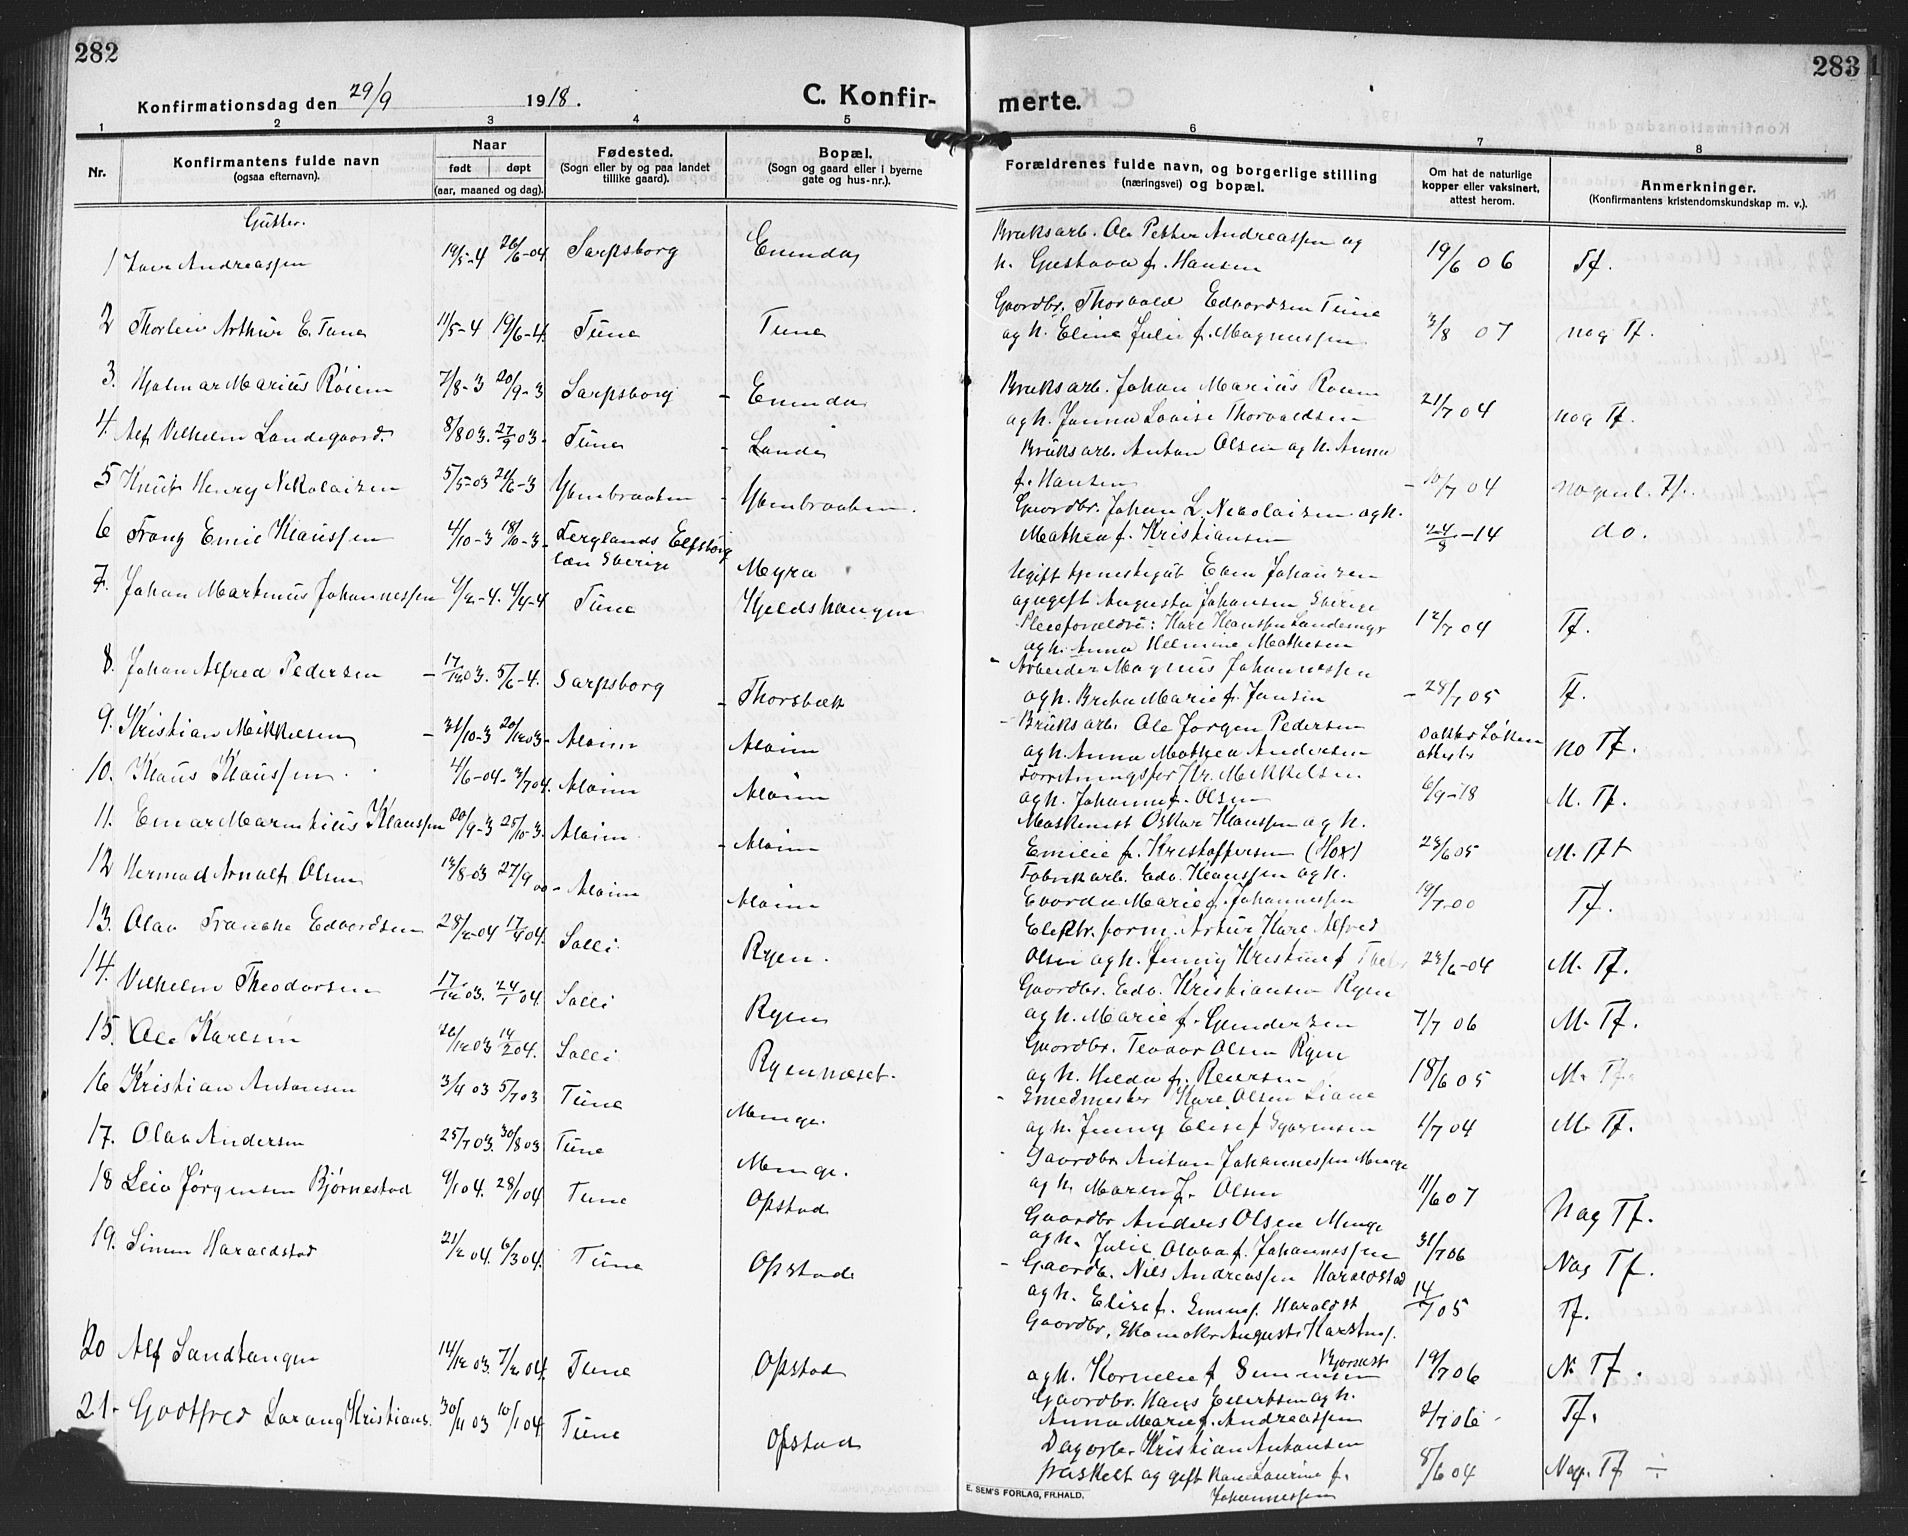 282
Konfirmationsdag den 29/9 1918.
C. Konfir-
1 2 3 4 5
Nr.
Konfirmantens fulde navn
(ogsaa efternavn).
Naar
født døpt
(aar, maaned og dag).
Fødested.
(Sogn eller by og paa landet
tillike gaard).
Bopæl.
(Sogn og gaard eller i byerne
gate og hus-nr.).
Gutter.
1 Andreassen 19/5-4 26/6-04 Sarpsborg Enenda
2 Thorleiv Arthur E. Tune 11/5-4 19/6-4. Tune Tune
3. Hjalmar Marius Röiem 7/8-3 20/9-3 Sarpsborg - Enenda
4. Alf Vilhelm Landegaard. 8/8 03. 27/9 03- Tune - Lande
5 Knut Henry Nikolaisen 5/5-03 21/6-3 Ybenbraaten - Ybenbraaten.
6 Frans Emil Klaussen 4/10-3 18/10-3- Lerglands Elfsborg
læn Sverige Myra
7. Johan Martinus Johannessen 4/4-4 Tune Kjeldshaugen
8. Johan Alfred Pedersen - 17/12 03. 5/6-4. Sarpsborg - Thorsbæk
9. Kristian Mikkelsen - 31/10-3 20/12 03- Aloim Aloim
10. Klaus Klaussen 4/6-04- 3/7 04. Aloim Aloim
11. Einar Klaussen 20/9-3 25/10-3. Aloim. - Aloim
12 Hermod Arnolf Olsen 13/8-03 27/9 00 - Aloim Aloim
13. Olav Edvardsen 28/2-04 17/4 04. Solli Ryen.
14. Vilhelm Theodorsen 17/12 03. 24/1 04. Solli Ryen
15. Ole Karlsen 26/12 03 14/2 04. Solli Ryennæset.
16 Kristian Antonsen 3/4 03 5/7 03 Tune Menge.
17. Olav Andersen 25/7 03. 30/8 03 Tune Menge.
18 Leiv Jørgensen Bjørnestad 9/1 04. 28/1 04. Tune Opstad
19. Simen Haraldstad 21/2 04. 6/3 04. Tune Opstad
20 Alf Sandtangen 14/12 03. 7/2 04. Tune Opstad
21- Godtfred Lorang Kristians. 30/11 03 10/1 04. Tune Opstad
283
merte.
6 7 8
Forældrenes fulde navn, og borgerlige stilling
(næringsvei) og bopæl.
Om hat de naturlige
kopper eller vaksinert,
attest herom.
Anmerkninger.
(Konfirmantens kristendomskundskap m. v.).
Bruksarb. Ole Petter Andreassen og
h. Gustava f. Hansen 19/6 06 Tf.
Gaardbr. Thorvald Edvardsen Tune
og h. Eline Julie f. Magnussen 3/8 07 nog Tf.
Bruksarb. Johan Marius Roiem
og h. Janna Lovise Thorvaldsen 21/7 04 nog Tf.
Bruksarb. Anton Olsen og h. Anna
f. Hansen - 10/7 04 nogenl. Tf.
Gaardbr. Johan L. Nikolaisen og h.
Mathea f. Kristiansen 24/8-14 do.
Ugift tjenestegut Johansen
og ugift Augusta Johansen Sverige
Pleieforældre: Karl Klaussen Landemyr 12/7 04 Tf.
og h. Anna Helmine Mathesen
- Arbeider Magnus Johannessen
og h. Marie f. Jansen - 28/7 05 Tf.
- Bruksarb. Ole Jørgen Pedersen
og h. Anna Mathea Andersen attest no Tf.
Forretningsfør Kr. Mikkelsen
og h. Johanne f. Olsen 6/9-18 M. Tf.
Maskinist Oskar Klaussen og h.
Emilie f. Kristoffersen (Hox) 23/6 05 M. Tf
Fabrikarb. Edv. Klaussen og h.
Marie f. Johannessen 19/7-00 Tf.
Elektr. form. Artur Karl Alfred
Olsen og h. Jenny Kristine f 23/6-04 M. Tf.
Gaardbr. Edv. Kristiansen Ryen
og h. Marie f. Gundersen 7/7 06 M. Tf.
Gaardbr. Teodor Olsen Ryen
og h. Hilda f. Reiersen 18/6 05 M. Tf.
- Smedmester Karl Olsen
og h. Jenny Elise f 4/7 04 M. Tf.
Gaardbr. Anton Johannessen Menge
og h. Maren f. Olsen 11/6 07 Nog Tf.
Gaardbr Anders Olsen Menge
og h. Julie Olava f. Johannessen 31/7 06 Nog Tf.
- Gaardb. Nils Andreassen Haraldstad
og h. Elise f. Haraldst 14/7 05 Tf.
Gaardbr. August
Bjørnest
og h. Kornelie f Simensen 19/7 06 N. Tf.
Gaardbr. Hans og h.
Anna Marie f. Andreassen 2/7 06 - Tf.
Dagarb. Kristian Antonsen
fraskilt og gift Laurine f. 8/6 04 Nog. Tf ÷
Johannessen
E. SEM'S FORLAG, FR.HALD.